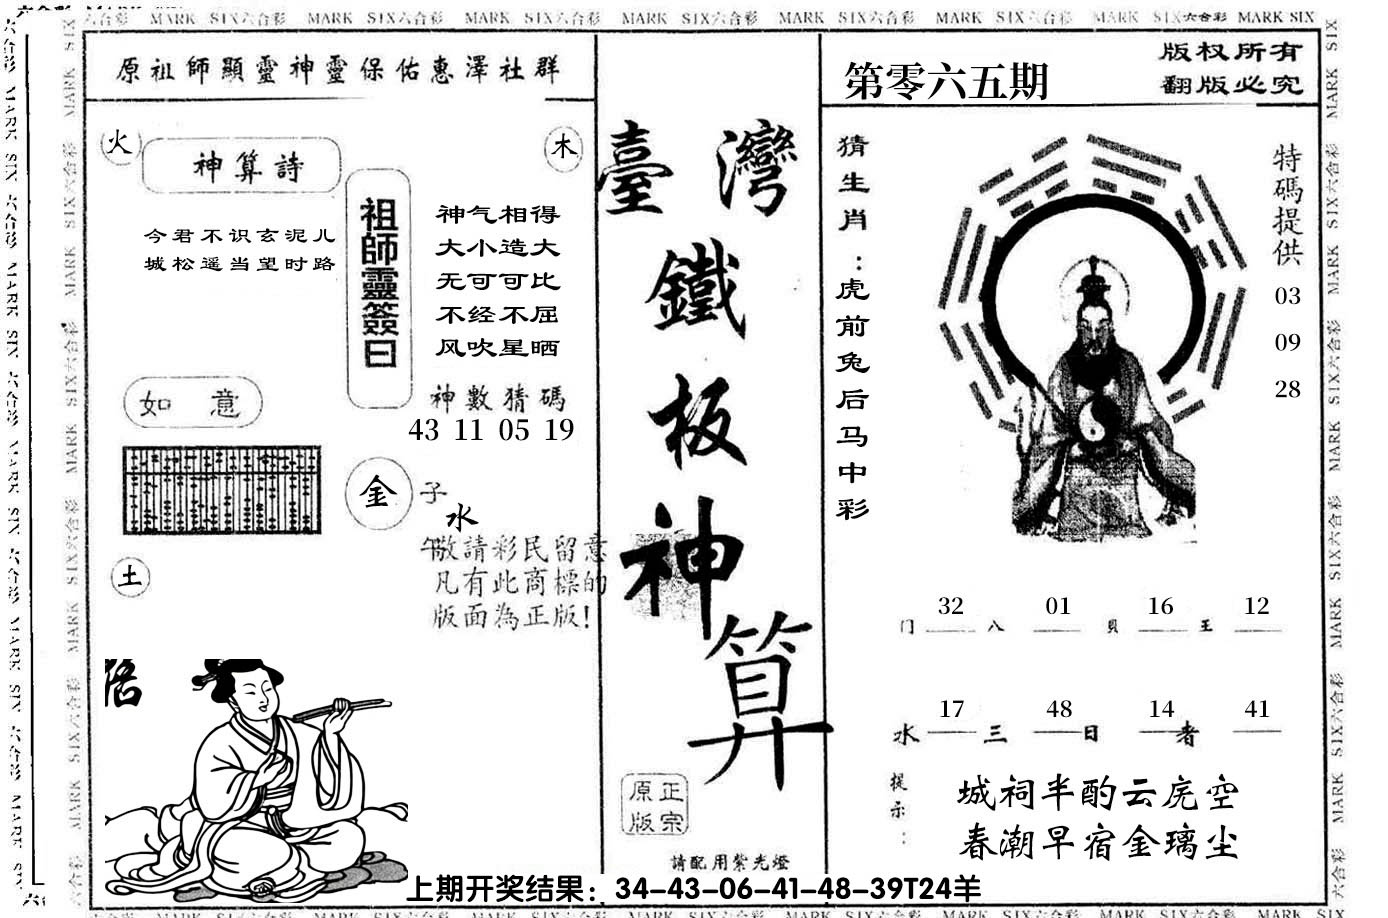 MARK SIX六合彩 MARK SIX六合彩 MARK SIX六合彩 MARK SIX六合彩 MARK SIX六合彩 MARK SIX六合彩 MARK SIX六合彩 MARK SIX
原祖師顯靈神靈保佑惠澤社群
火
神算詩
木
今君不识玄泥儿
城松遥当望时路
祖師靈簽曰
神气相得
大小造大
无可可比
不经不屈
风吹星晒
神數猜碼
43 11 05 19
如意
金
子
水
午
敬請彩民留意
凡有此商標的
版面為正版!
土
臺灣
鐵
板
神
算
正宗
原版
請配用紫光燈
第零六五期
版权所有
翻版必究
猜生肖:虎前兔后马中彩
特碼提供
03
09
28
门 32 八 01 貝 16 王 12
水 17 三 48 日 14 者 41
提示:
城祠半酌云庑空
春潮早宿金璃尘
上期开奖结果：34-43-06-41-48-39T24羊